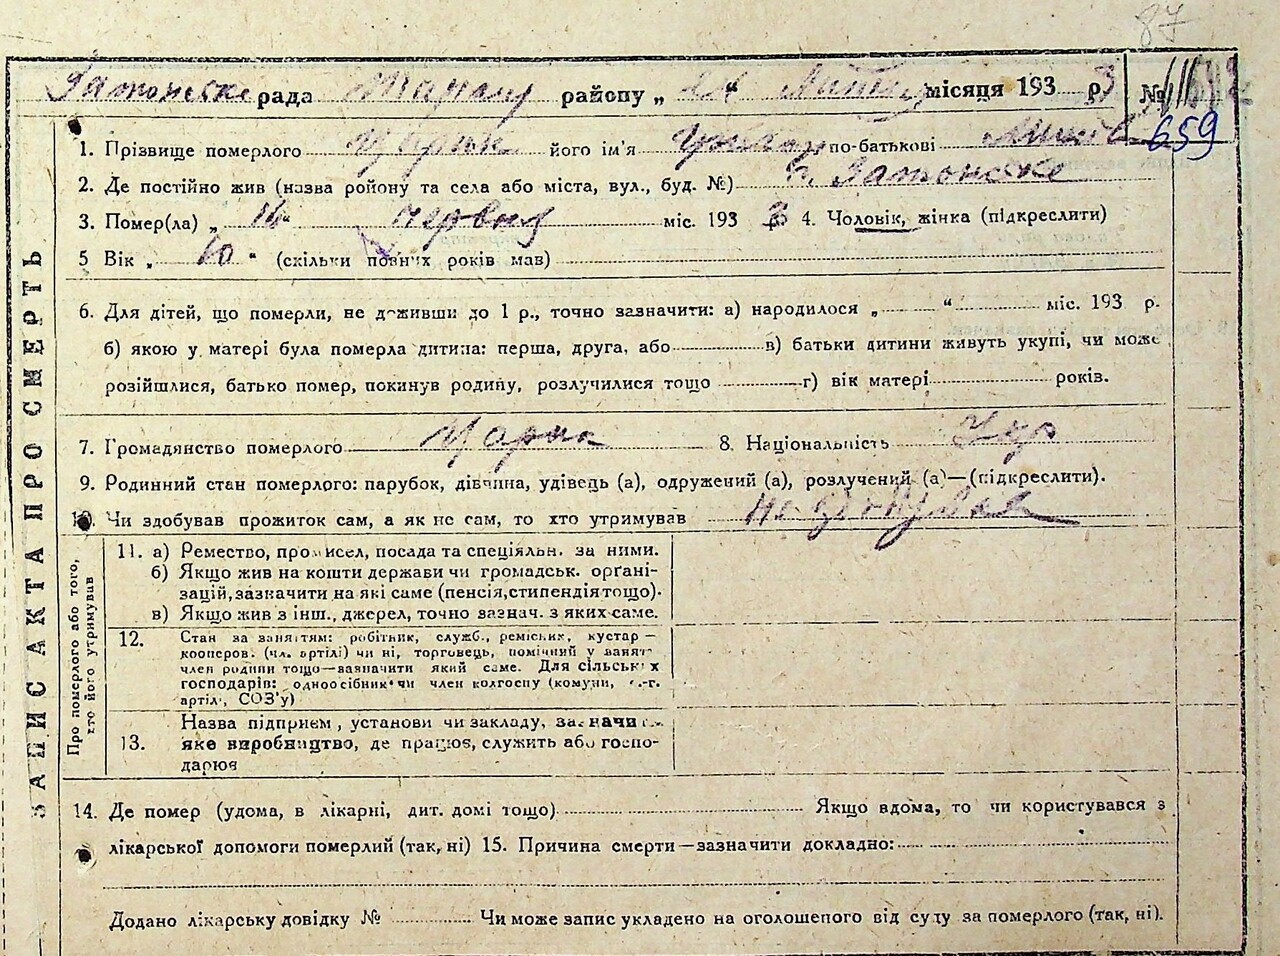 87
Затонське рада району „ “ місяця 193 3 р. №
659
1. Прізвище померлого його ім'я по-батькові
2. Де постійно жив (назва ройону та села або міста, вул., буд. №) Затонске
3. Помер(ла) „ 16 “ червня міс. 193 3 4. Чоловік, жінка (підкреслити)
5 Вік „ “ (скільки повних років мав)
6. Для дітей, що померли, не доживши до 1 р., точно зазначити: а) народилося „ “ міс. 193 р.
б) якою у матері була померла дитина: перша, друга, або в) батьки дитини живуть укупі, чи може
розійшлися, батько помер, покинув родину, розлучилися тощо г) вік матері років.
7. Громадянство померлого 8. Національність Укр
9. Родинний стан померлого: парубок, дівчина, удівець (а), одружений (а), розлучений (а)—(підкреслити).
10. Чи здобував прожиток сам, а як не сам, то хто утримував не здобував
ЗАПИС АКТА ПРО СМЕРТЬ
Про померлого або того,
хто його утримував
11. а) Ремество, промисел, посада та спеціяльн. за ними.
б) Якщо жив на кошти держави чи громадськ. орґані-
зацій, зазначити на які саме (пенсія, стипендія тощо).
в) Якщо жив з інш., джерел, точно зазнач. з яких-саме.
12. Стан за заняттям: робітник, служб., реміскик, кустар —
кооперов. (чл. артілі) чи ні, торговець, помічний у занят
член родини тощо—зазначити який саме. Для сільськ х
господарів: одноосібник чи член колгоспу (комуни, с.-г.
артіл, СОЗ'у)
Назва підприєм, установи чи закладу, зазначи
13. яке виробництво, де працює, служить або госпо-
дарює
14. Де помер (удома, в лікарні, дит. домі тощо) Якщо вдома, то чи користувався з
лікарської допомоги померлий (так, ні) 15. Причина смерти—зазначити докладно:
Додано лікарську довідку № Чи може запис укладено на оголошеного від суду за померлого (так, ні).